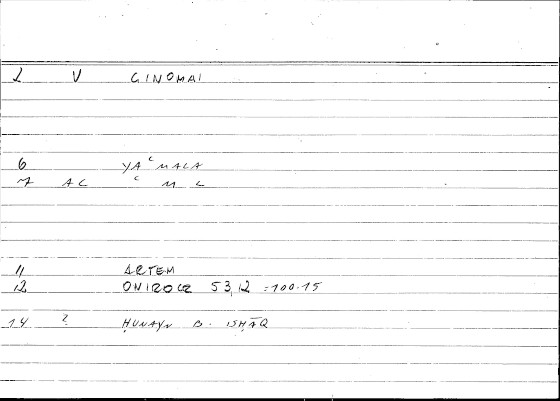 1 V GINOMAI
6 YAʿMALA
7 AC ʿ M L
11 ARTEM
12 ONIROCR 53,12 =100.15
14 ? ḤUNAYN B. ISḤĀQ